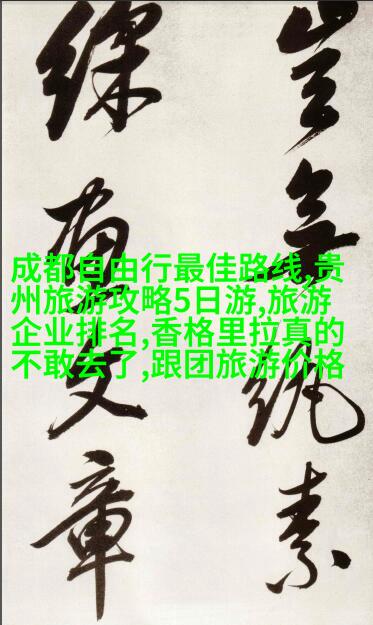 豈無紈素
綵畫文章
成都自由行最佳路线,贵
州旅游攻略5日游,旅游
企业排名,香格里拉真的
不敢去了,跟团旅游价格